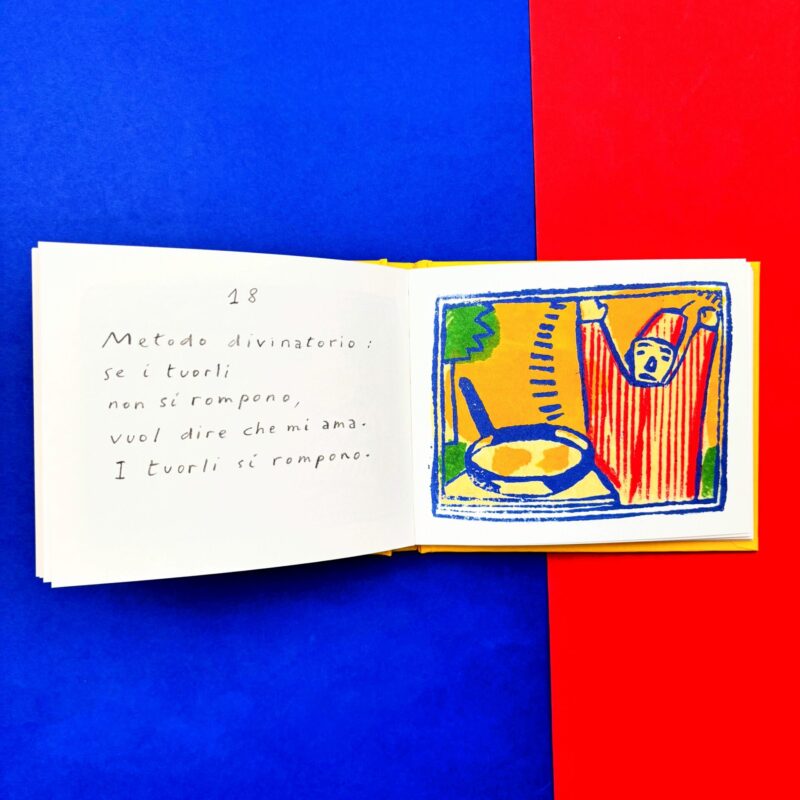 18
Metodo divinatorio :
se i tuorli
non si rompono,
vuol dire che mi ama.
I tuorli si rompono.